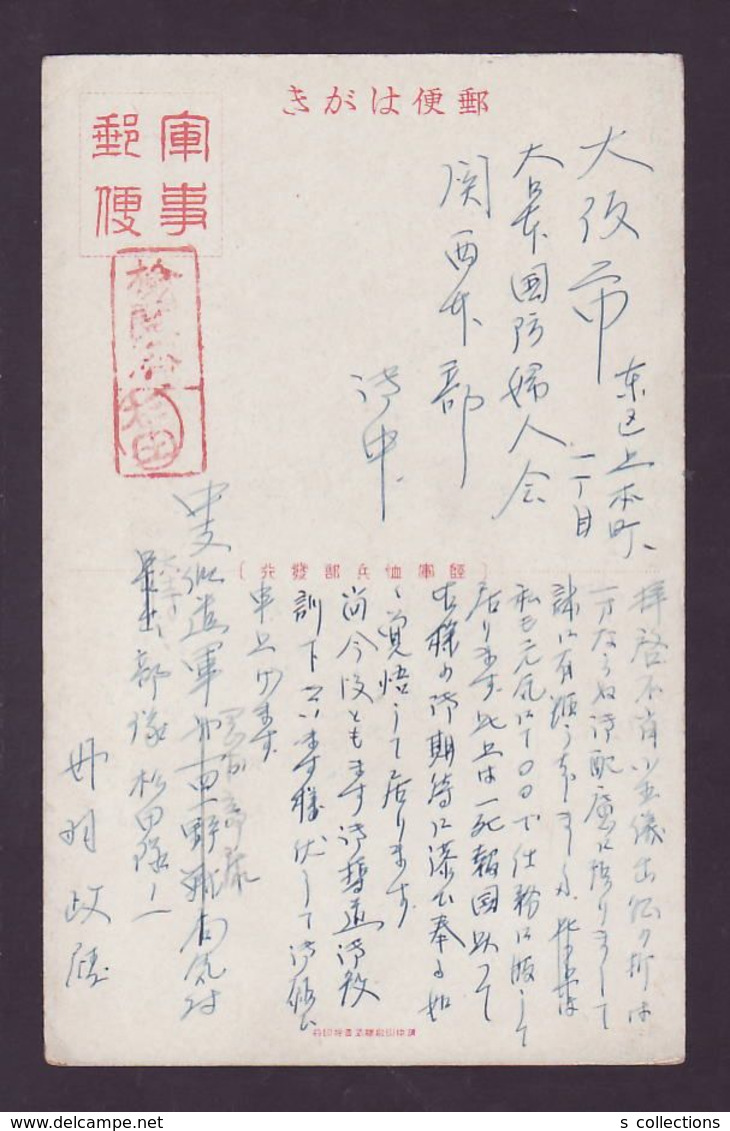 郵便はがき
軍事
郵便
大阪市
東区上本町
一丁目
大日本国防婦人会
関西本部
御中
陸軍恤兵部發行
拝啓 不肖小生儀出征の折は
一方ならぬ御配慮に預りまして
誠に有難うございました
私も元気にて〇〇で仕務に服して
居ります 此上は一死報国以つて
皆様の御期待に添ひ奉る如
く覚悟して居ります
尚今後ともます御指導御教
訓下さいます様伏して御願ひ
申上げます
中支派遣軍
野戦局気付
部隊松田隊ノ一
s collections